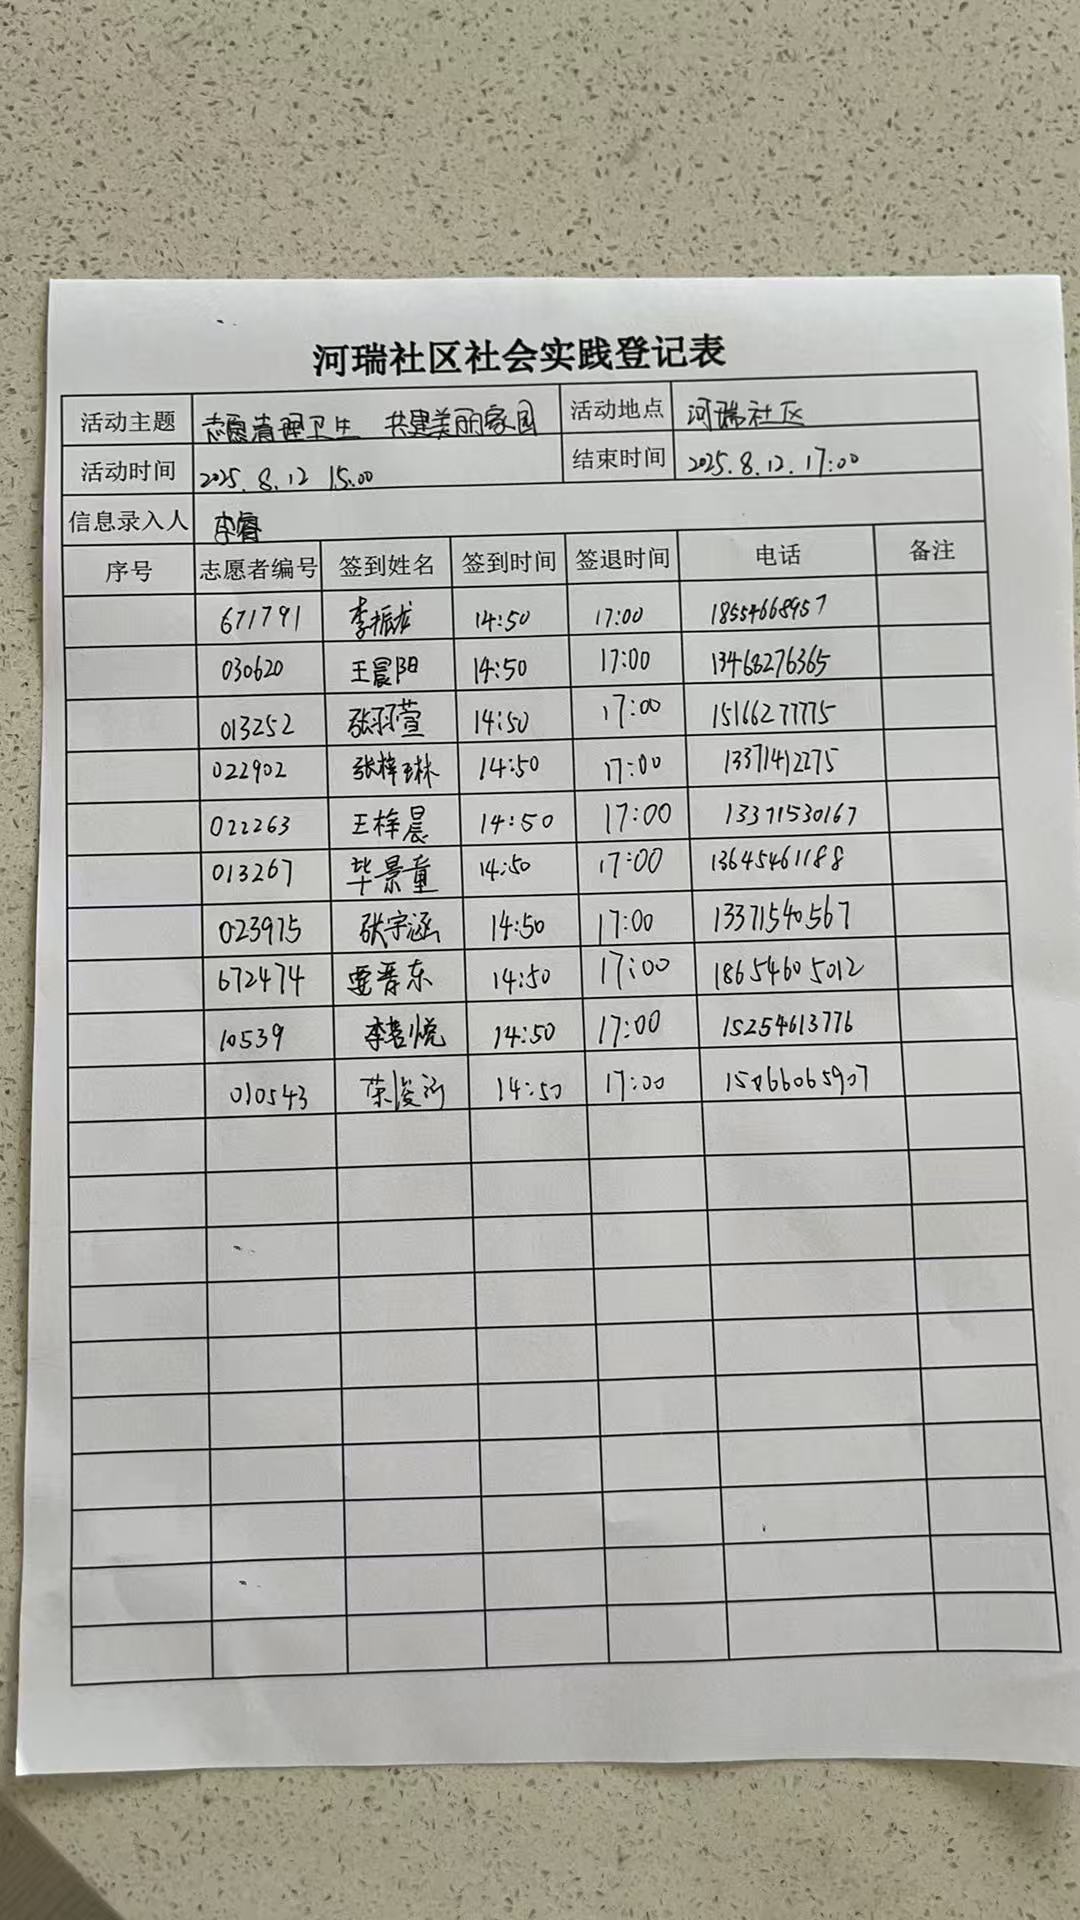 河瑞社区社会实践登记表
活动主题 志愿清理卫生 共建美丽家园 活动地点 河瑞社区
活动时间 2025.8.12 15:00 结束时间 2025.8.12.17:00
信息录入人 李睿
序号 志愿者编号 签到姓名 签到时间 签退时间 电话 备注
671791 李振龙 14:50 17:00 18554668957
030620 王晨阳 14:50 17:00 13468276365
013252 张羽萱 14:50 17:00 15166277775
022902 张梓琳 14:50 17:00 13371412275
022263 王梓晨 14:50 17:00 13371530167
013267 毕景童 14:50 17:00 13645461188
023975 张宇涵 14:50 17:00 13371540567
672474 晋东 14:50 17:00 18654605012
10539 李 悦 14:50 17:00 15254613776
010543 荣俊 14:50 17:00